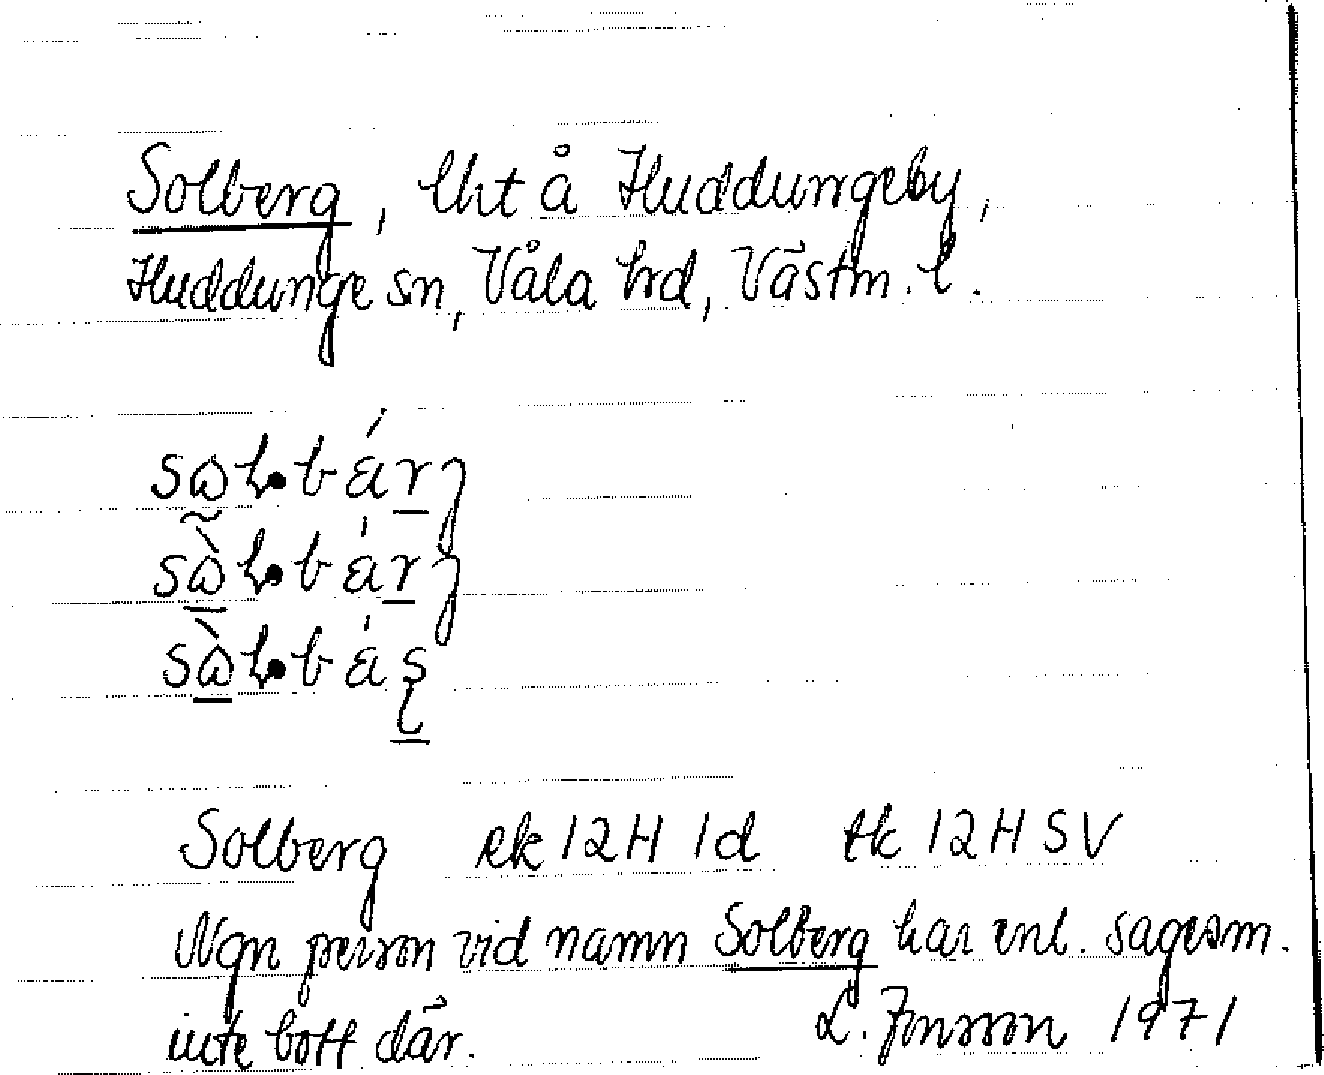 Solberg, lht å Huddungeby,
Huddunge sn, Våla hrd, Västm. l.
Solberg ek 12H 1d tk 12H SV
Ngn person vid namn Solberg har enl. sagesm.
inte bott där. L. Jonsson 1971